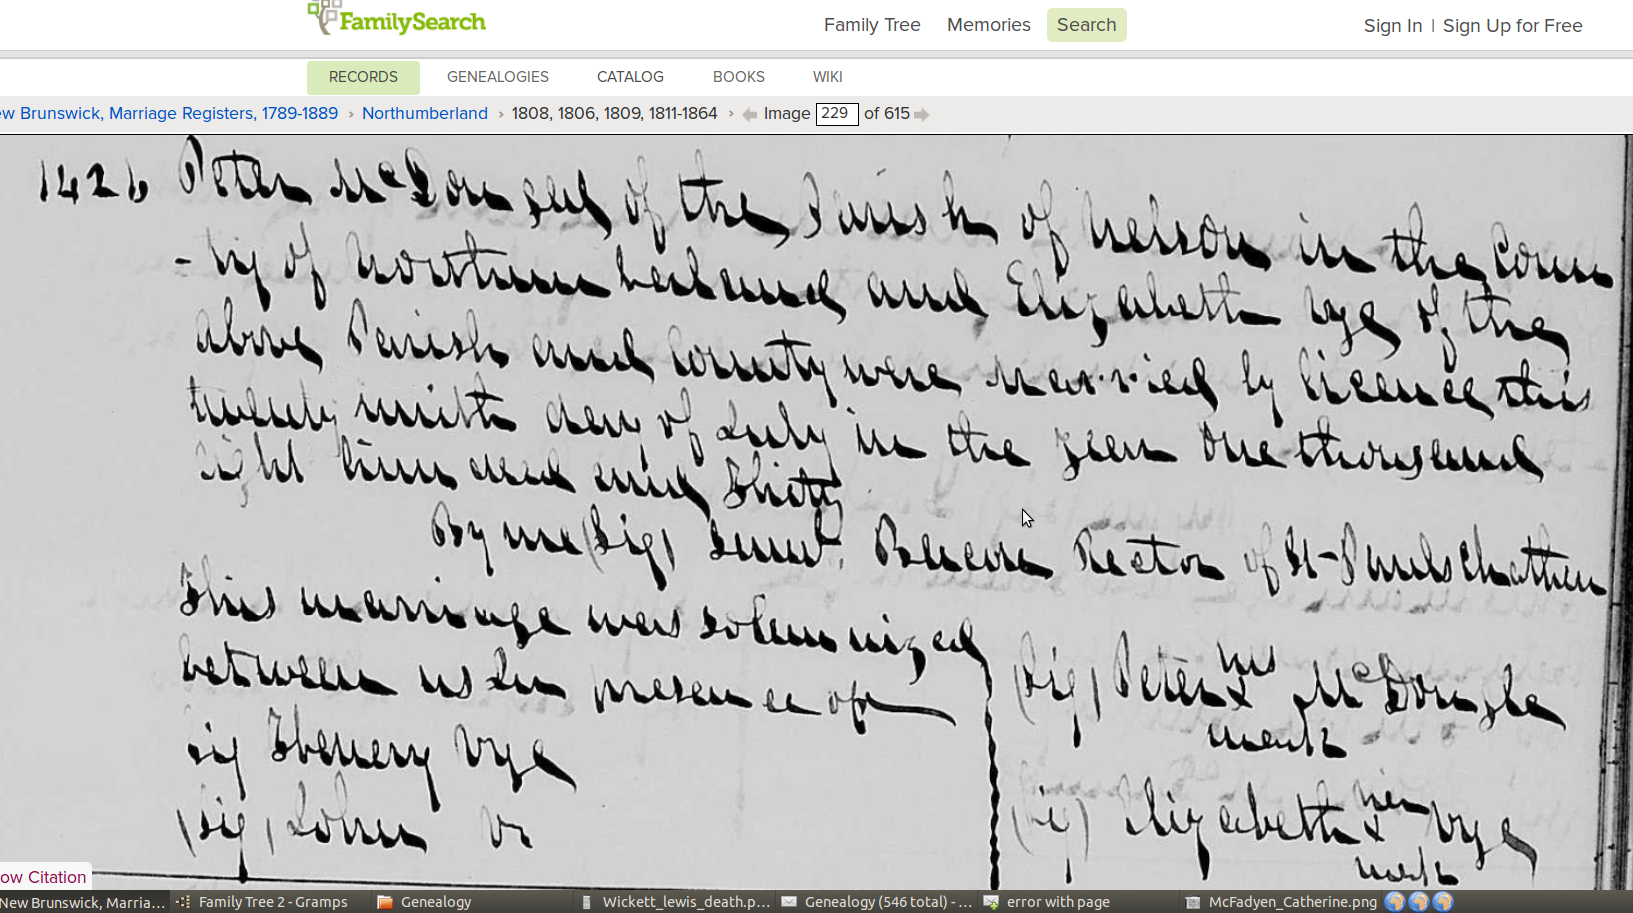 FamilySearch
Family Tree Memories Search Sign In | Sign Up for Free
RECORDS GENEALOGIES CATALOG BOOKS WIKI
ew Brunswick, Marriage Registers, 1789-1889 › Northumberland › 1808, 1806, 1809, 1811-1864 › Image 229 of 615
1426 Peter McDougall of the Parish of Nelson in the Coun
-ty of Northumberland and Elizabeth Vye of the
above Parish and County were married by licence this
twenty ninth day of July in the year one thousand
eight hundred and Thirty
By me (Sig) Bacon Rector of St Pauls Chatham
This marriage was solemnized
between us In presence of
sig Henery Vye
(Sig) John
(Sig) Peter his x McDougle
mark
(Sig) Elizabeth her x Vye
mark
ow Citation
New Brunswick, Marria... Family Tree 2 - Gramps Genealogy Wickett_lewis_death.p... Genealogy (546 total) - ... error with page McFadyen_Catherine.png